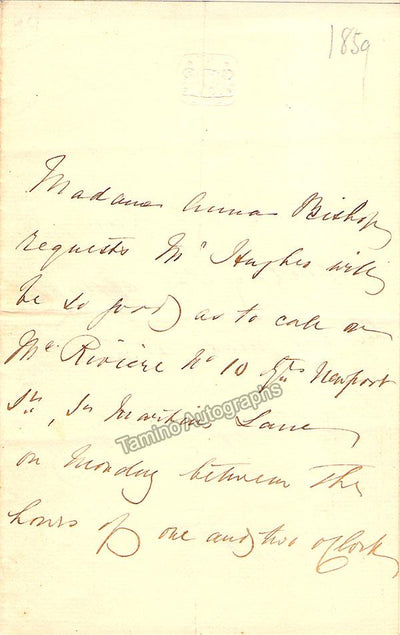 1859
Madame Anna Bishop
requests Mr Hughes will
be so good as to call on
Mr Riviere No 10 Newport
St, St Martins Lane
on Monday between the
hours of one and two oClock
Tamino Autographs